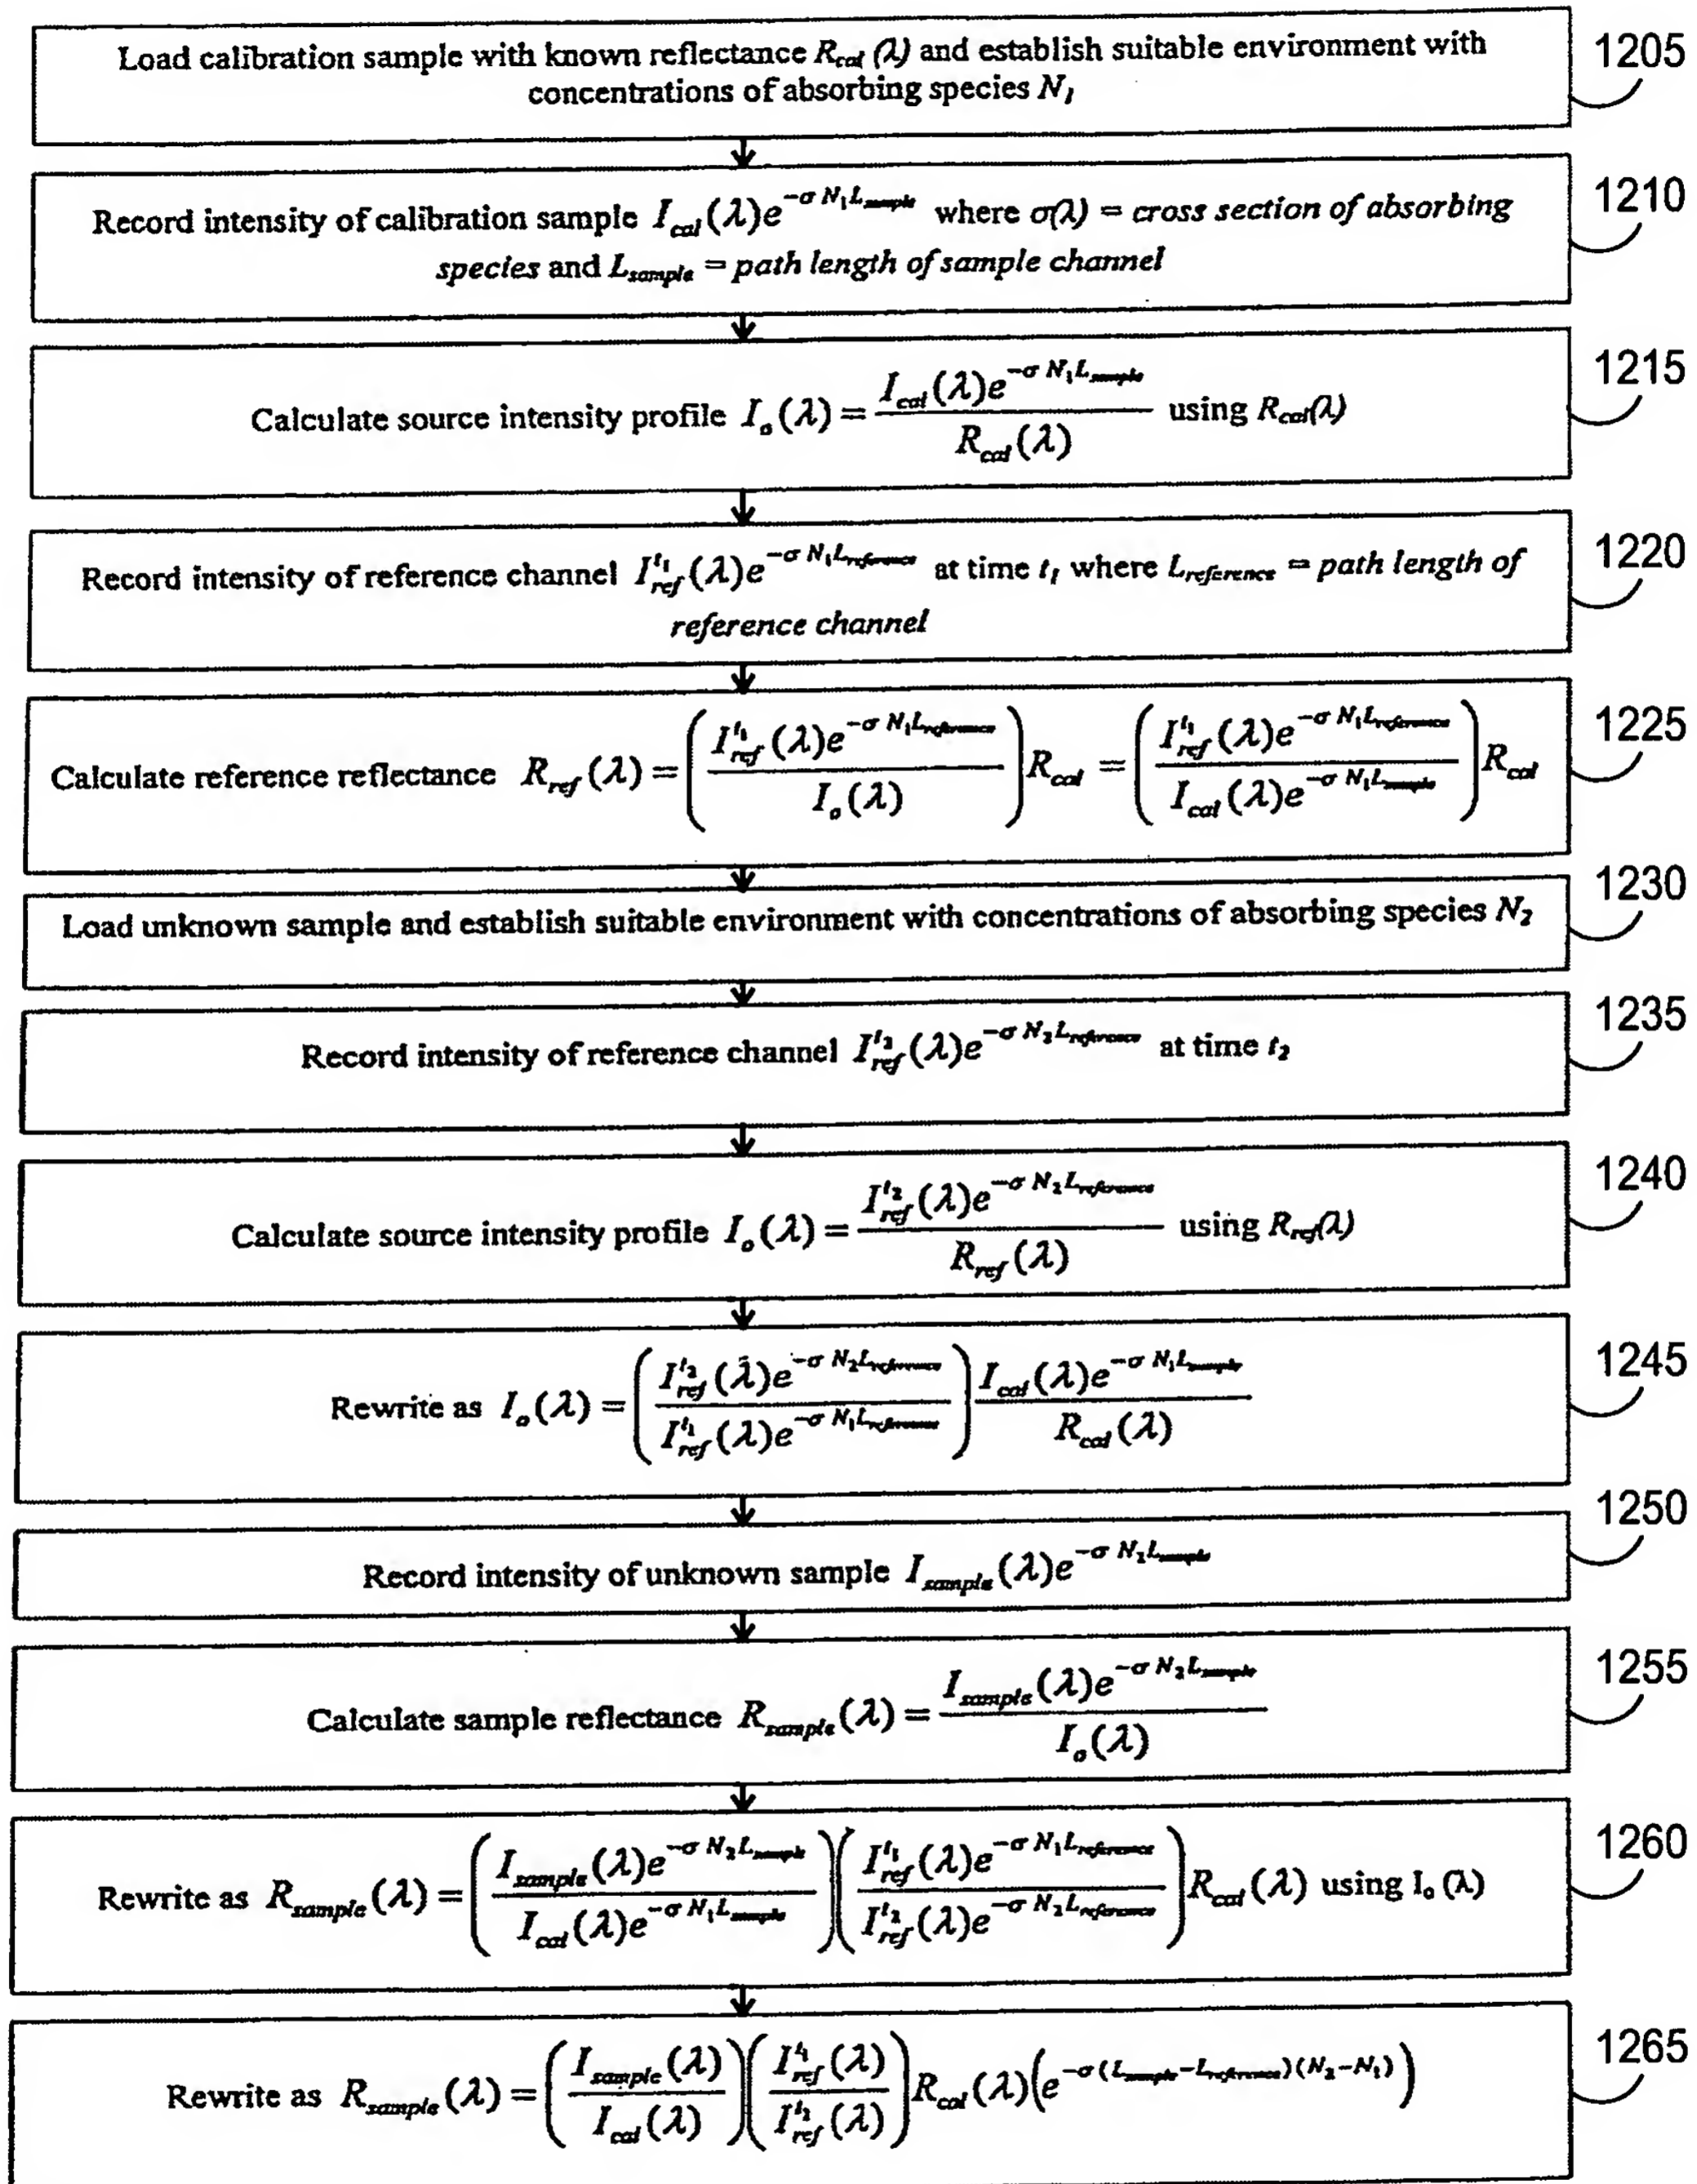 Load calibration sample with known reflectance R_cal (λ) and establish suitable environment with
concentrations of absorbing species N_1
1205
Record intensity of calibration sample I_cal(λ)e^{-σ N_1 L_sample} where σ(λ) = cross section of absorbing
species and L_sample = path length of sample channel
1210
Calculate source intensity profile I_o(λ) = \frac{I_cal(λ)e^{-σ N_1 L_sample}}{R_cal(λ)} using R_cal(λ)
1215
Record intensity of reference channel I_ref^{t_1}(λ)e^{-σ N_1 L_reference} at time t_1 where L_reference = path length of
reference channel
1220
Calculate reference reflectance R_ref(λ) = (\frac{I_ref^{t_1}(λ)e^{-σ N_1 L_reference}}{I_o(λ)})R_cal = (\frac{I_ref^{t_1}(λ)e^{-σ N_1 L_reference}}{I_cal(λ)e^{-σ N_1 L_sample}})R_cal
1225
Load unknown sample and establish suitable environment with concentrations of absorbing species N_2
1230
Record intensity of reference channel I_ref^{t_2}(λ)e^{-σ N_2 L_reference} at time t_2
1235
Calculate source intensity profile I_o(λ) = \frac{I_ref^{t_2}(λ)e^{-σ N_2 L_reference}}{R_ref(λ)} using R_ref(λ)
1240
Rewrite as I_o(λ) = (\frac{I_ref^{t_2}(λ)e^{-σ N_2 L_reference}}{I_ref^{t_1}(λ)e^{-σ N_1 L_reference}})\frac{I_cal(λ)e^{-σ N_1 L_sample}}{R_cal(λ)}
1245
Record intensity of unknown sample I_sample(λ)e^{-σ N_2 L_sample}
1250
Calculate sample reflectance R_sample(λ) = \frac{I_sample(λ)e^{-σ N_2 L_sample}}{I_o(λ)}
1255
Rewrite as R_sample(λ) = (\frac{I_sample(λ)e^{-σ N_2 L_sample}}{I_cal(λ)e^{-σ N_1 L_sample}})(\frac{I_ref^{t_1}(λ)e^{-σ N_1 L_reference}}{I_ref^{t_2}(λ)e^{-σ N_2 L_reference}})R_cal(λ) using I_o (λ)
1260
Rewrite as R_sample(λ) = (\frac{I_sample(λ)}{I_cal(λ)})(\frac{I_ref^{t_1}(λ)}{I_ref^{t_2}(λ)})R_cal(λ)(e^{-σ (L_sample-L_reference)(N_2-N_1)})
1265